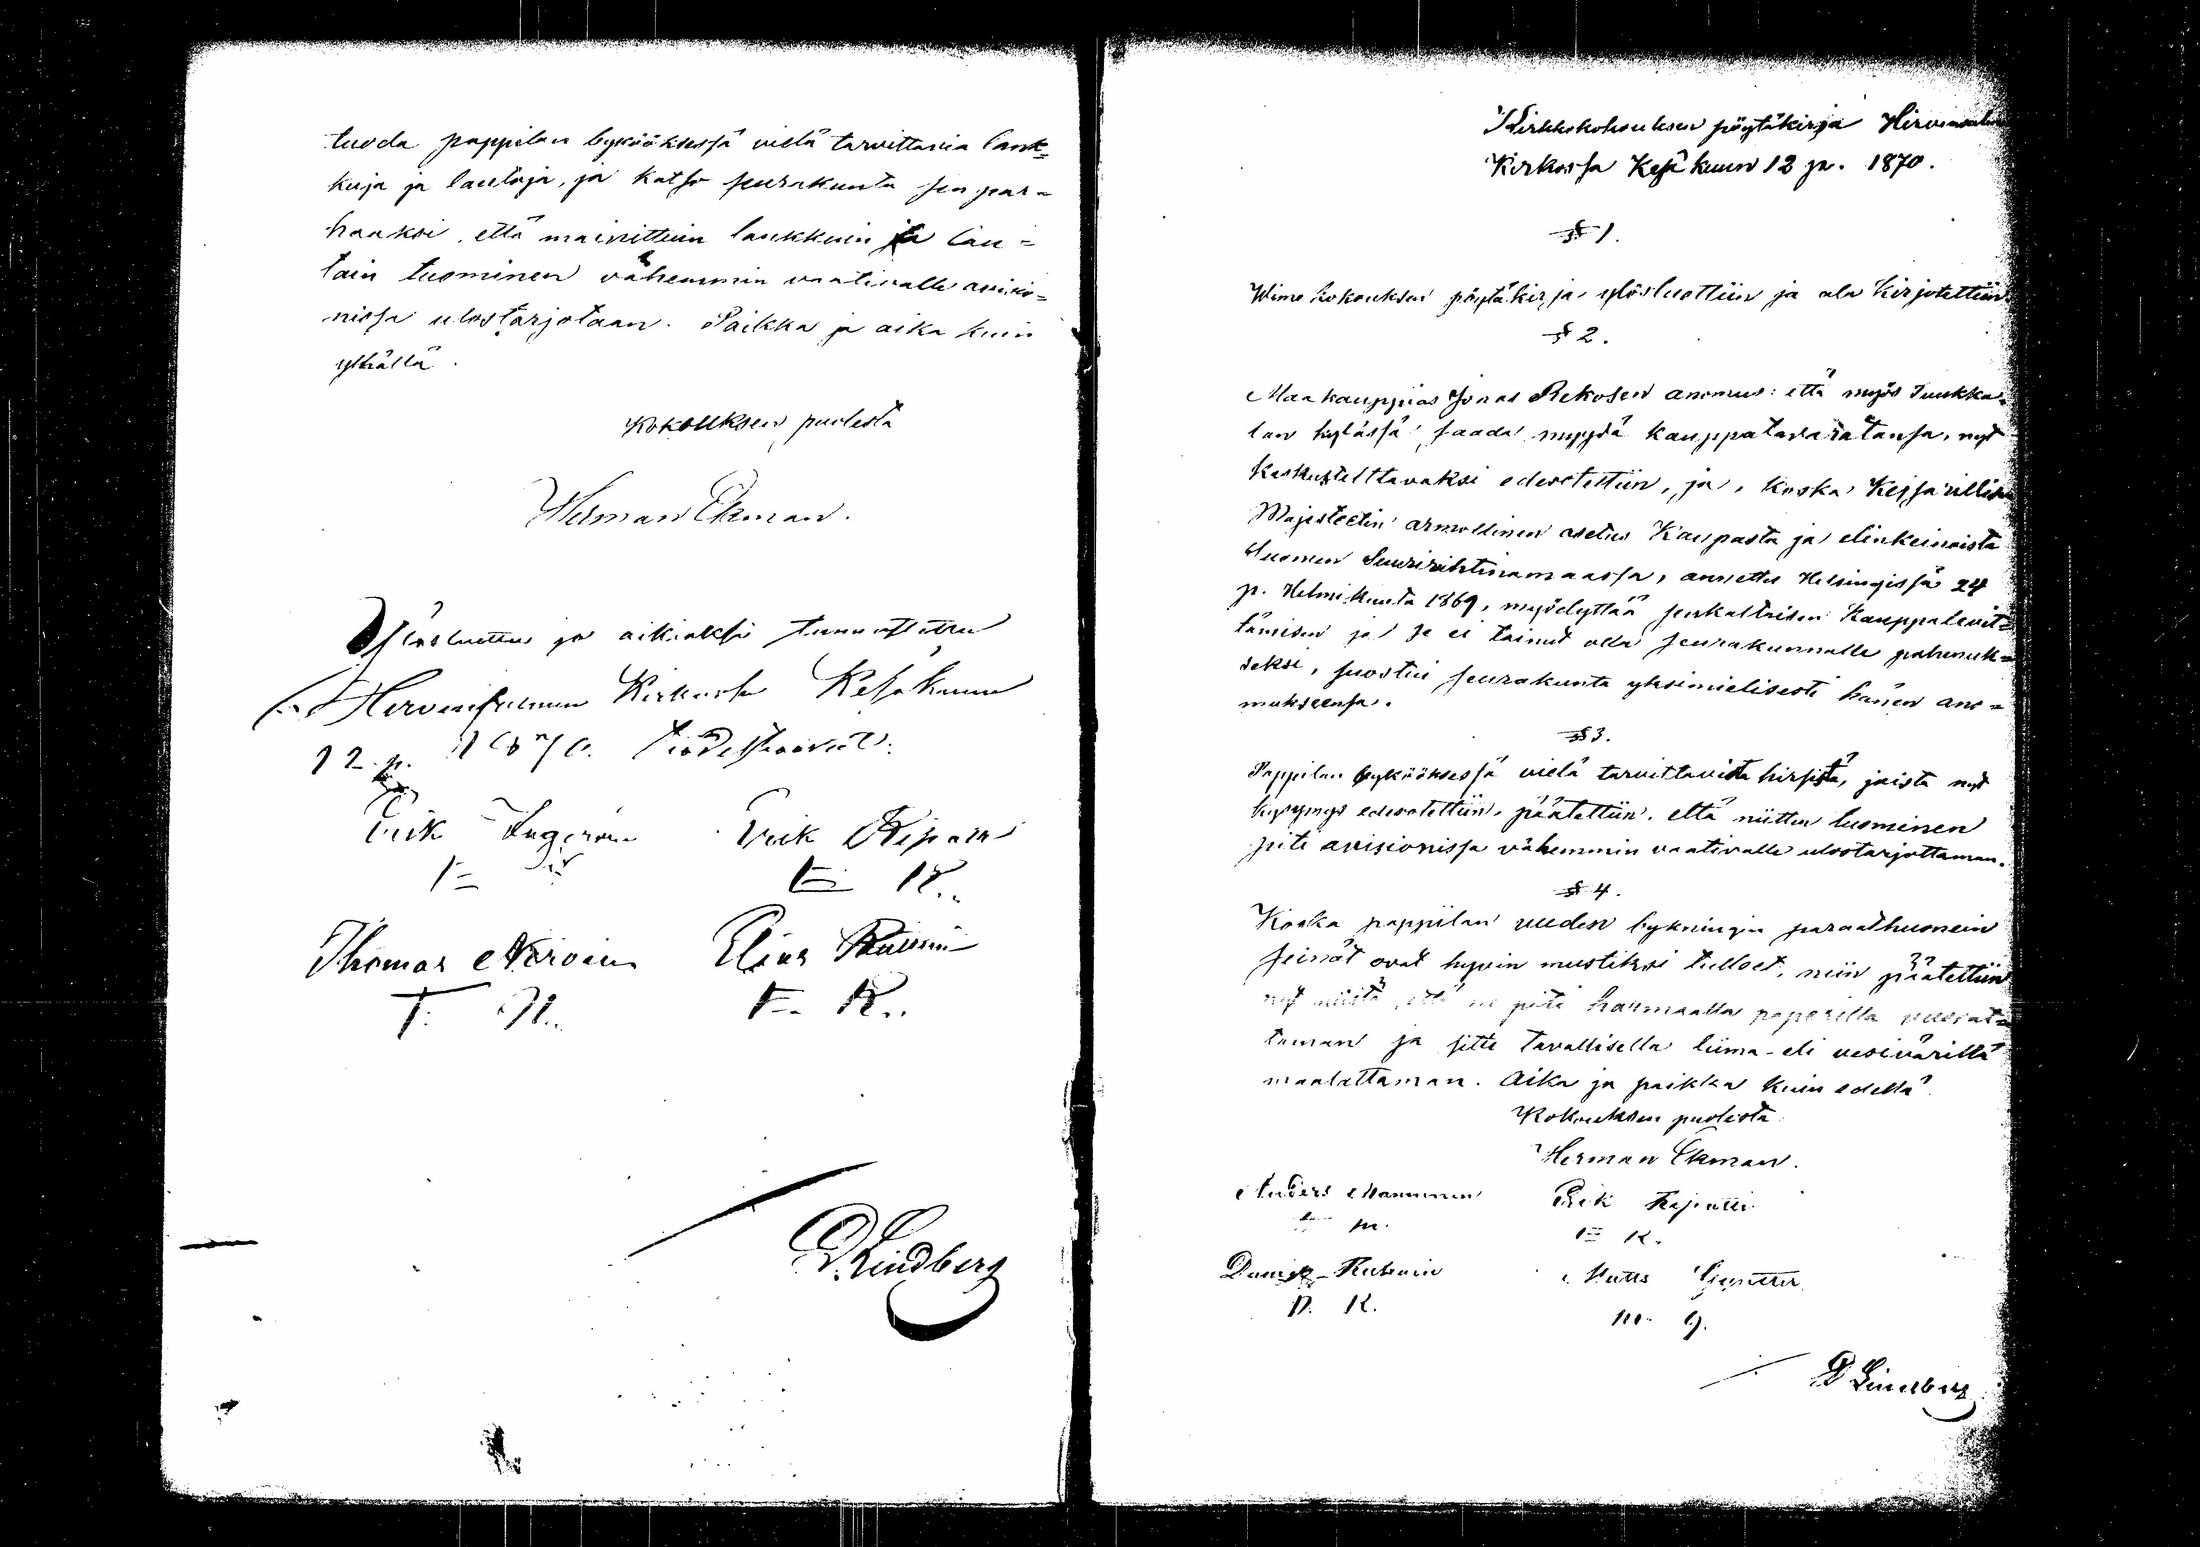 tuoda pappilan bykööksessä vielä tarvittavia lank=
kuja ja lautoja, ja katso seurakunta sen par=
haaksi, että mainittuin lankkuin ja lau=
tain tuominen vähemmin vaativalle auksio=
nissa ulostarjotaan. Paikka ja aika kuin
ylhällä.
Kokouksen puolesta
Herman Ekman.
Ylösluettu ja oikiaksi tunnustettu
Hirvensalmen Kirkossa Kesäkuun
12 p. 1870. Todistavat:
Erik Erik
Thomas Elias
T. H. E. R.
D. Lindberg
Kirkkokokouksen pöytäkirja Hirvensalmen
Kirkossa Kesäkuun 12 p. 1870.
§ 1.
Wime kokouksen pöytäkirja ylösluettiin ja ala kirjotettiin
§ 2.
Maakauppias Jonas Rekosen anomus: että myös Tuukka=
lan kylässä saada myydä kauppatavaratansa, nyt
keskusteltavaksi edesotettiin, ja, koska Keisarillisen
Majesteetin armollinen asetus Kaupasta ja elinkeinoista
Suomen Suuriruhtinanmaassa, annettu Helsingissä 24
p. Helmikuuta 1869, myödyttää senkaltaisen Kauppalevit=
tämisen ja se ei tainut olla seurakunnalle pahenuk=
seksi, suostui seurakunta yksimielisesti hänen ano=
mukseensa.
§ 3.
Pappilan bykööksessä vielä tarvittavista hirsistä, joista nyt
kysymys edesotettiin, päätettiin, että niitten tuominen
piti auksionissa vähemmin vaativalle ulostarjottaman.
§ 4.
Koska pappilan uuden bykningin paraathuonein
seinät ovat hyvin mustiksi tulleet, niin päätettiin
nyt niistä, että ne piti harmaalla paperilla vuorat=
taman ja sitte tavallisella liima- eli vesivärillä
maalattaman. Aika ja paikka kuin edellä.
Kokouksen puolesta
Herman Ekman.
Anders Manninen Erik
M. E= K.
Matts
D. K. M. G.
D Lindberg